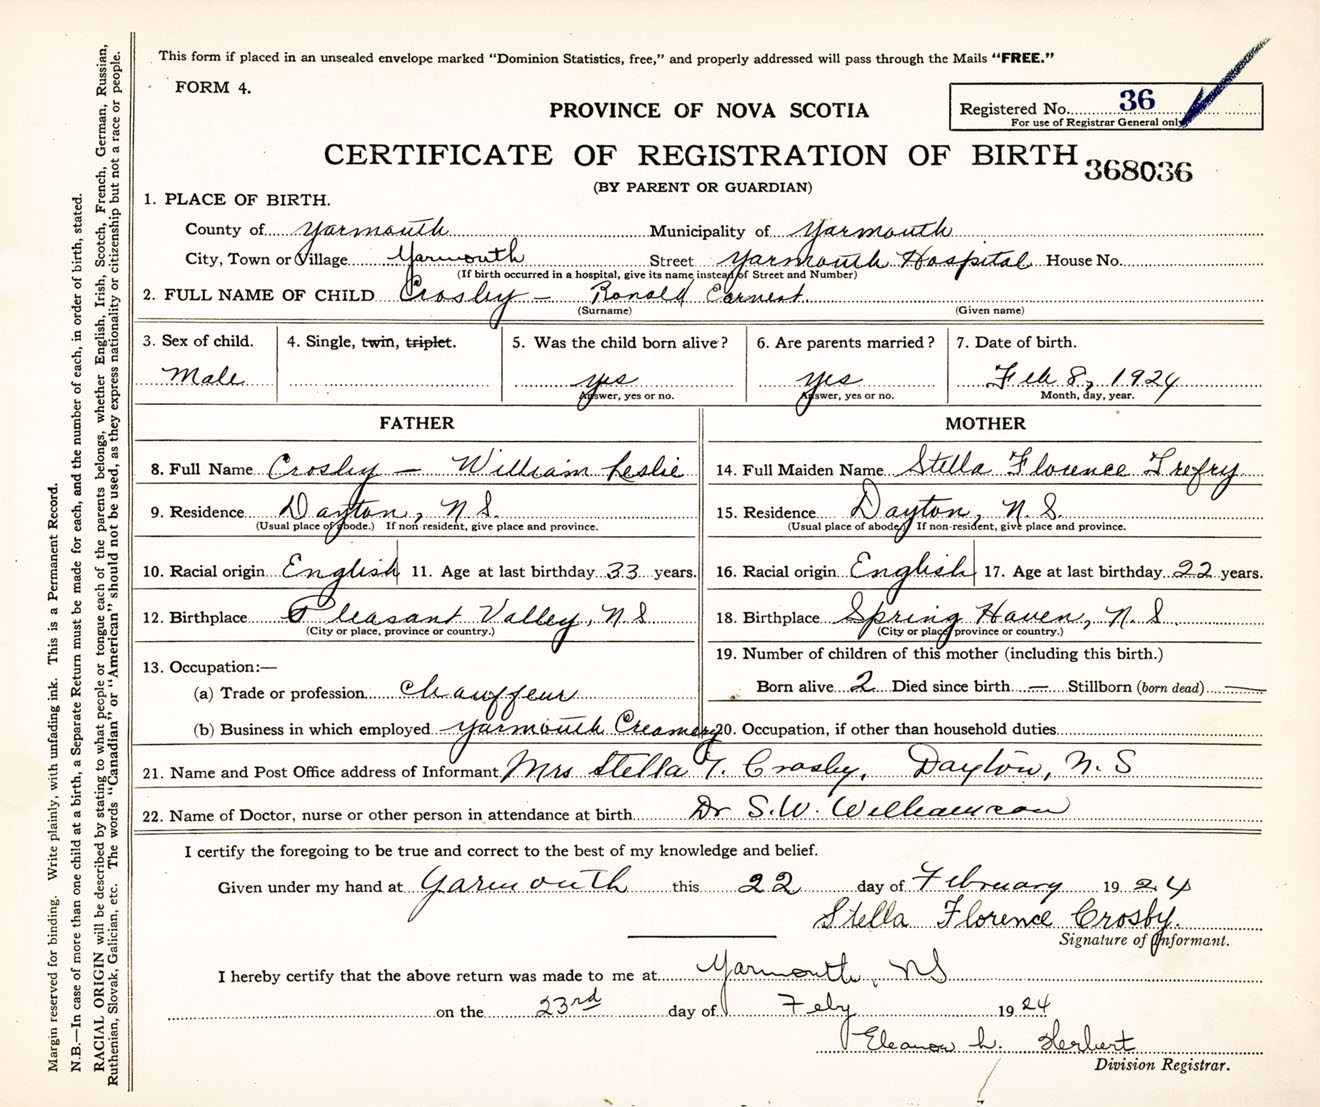 This form if placed in an unsealed envelope marked "Dominion Statistics, free," and properly addressed will pass through the Mails "FREE."
FORM 4.
PROVINCE OF NOVA SCOTIA
Registered No. 36
For use of Registrar General only
CERTIFICATE OF REGISTRATION OF BIRTH 368036
(BY PARENT OR GUARDIAN)
1. PLACE OF BIRTH.
County of Yarmouth Municipality of Yarmouth
City, Town or Village Yarmouth Street Yarmouth Hospital House No.
(If birth occurred in a hospital, give its name instead of Street and Number)
2. FULL NAME OF CHILD Crosby - Ronald Earnest.
(Surname) (Given name)
3. Sex of child. 4. Single, twin, triplet. 5. Was the child born alive? 6. Are parents married? 7. Date of birth.
Male yes yes Feb 8, 1924
Answer, yes or no. Answer, yes or no. Month, day, year.
FATHER MOTHER
8. Full Name Crosby - William Leslie 14. Full Maiden Name Stella Florence Trefry
9. Residence Dayton, N.S. 15. Residence Dayton, N.S.
(Usual place of abode.) If non-resident, give place and province. (Usual place of abode) If non-resident, give place and province.
10. Racial origin English 11. Age at last birthday 33 years. 16. Racial origin English 17. Age at last birthday 22 years.
12. Birthplace Pleasant Valley, N.S 18. Birthplace Spring Haven, N.S.
(City or place, province or country.) (City or place, province or country.)
13. Occupation:— 19. Number of children of this mother (including this birth.)
(a) Trade or profession Chauffeur Born alive 2 Died since birth — Stillborn (born dead) —
(b) Business in which employed Yarmouth Creamery 20. Occupation, if other than household duties
21. Name and Post Office address of Informant Mrs Stella F. Crosby, Dayton, N.S
22. Name of Doctor, nurse or other person in attendance at birth Dr S.W. Williamson
I certify the foregoing to be true and correct to the best of my knowledge and belief.
Given under my hand at Yarmouth this 22 day of February 1924
Stella Florence Crosby.
Signature of Informant.
I hereby certify that the above return was made to me at Yarmouth, NS
on the 23rd day of Feby 1924
Eleanor L. Herbert
Division Registrar.
Margin reserved for binding. Write plainly, with unfading ink. This is a Permanent Record.
N.B.—In case of more than one child at a birth, a Separate Return must be made for each, and the number of each, in order of birth, stated.
RACIAL ORIGIN will be described by stating to what people or tongue each of the parents belongs, whether English, Irish, Scotch, French, German, Russian,
Ruthenian, Slovak, Galician, etc. The words "Canadian" or "American" should not be used, as they express nationality or citizenship but not a race or people.